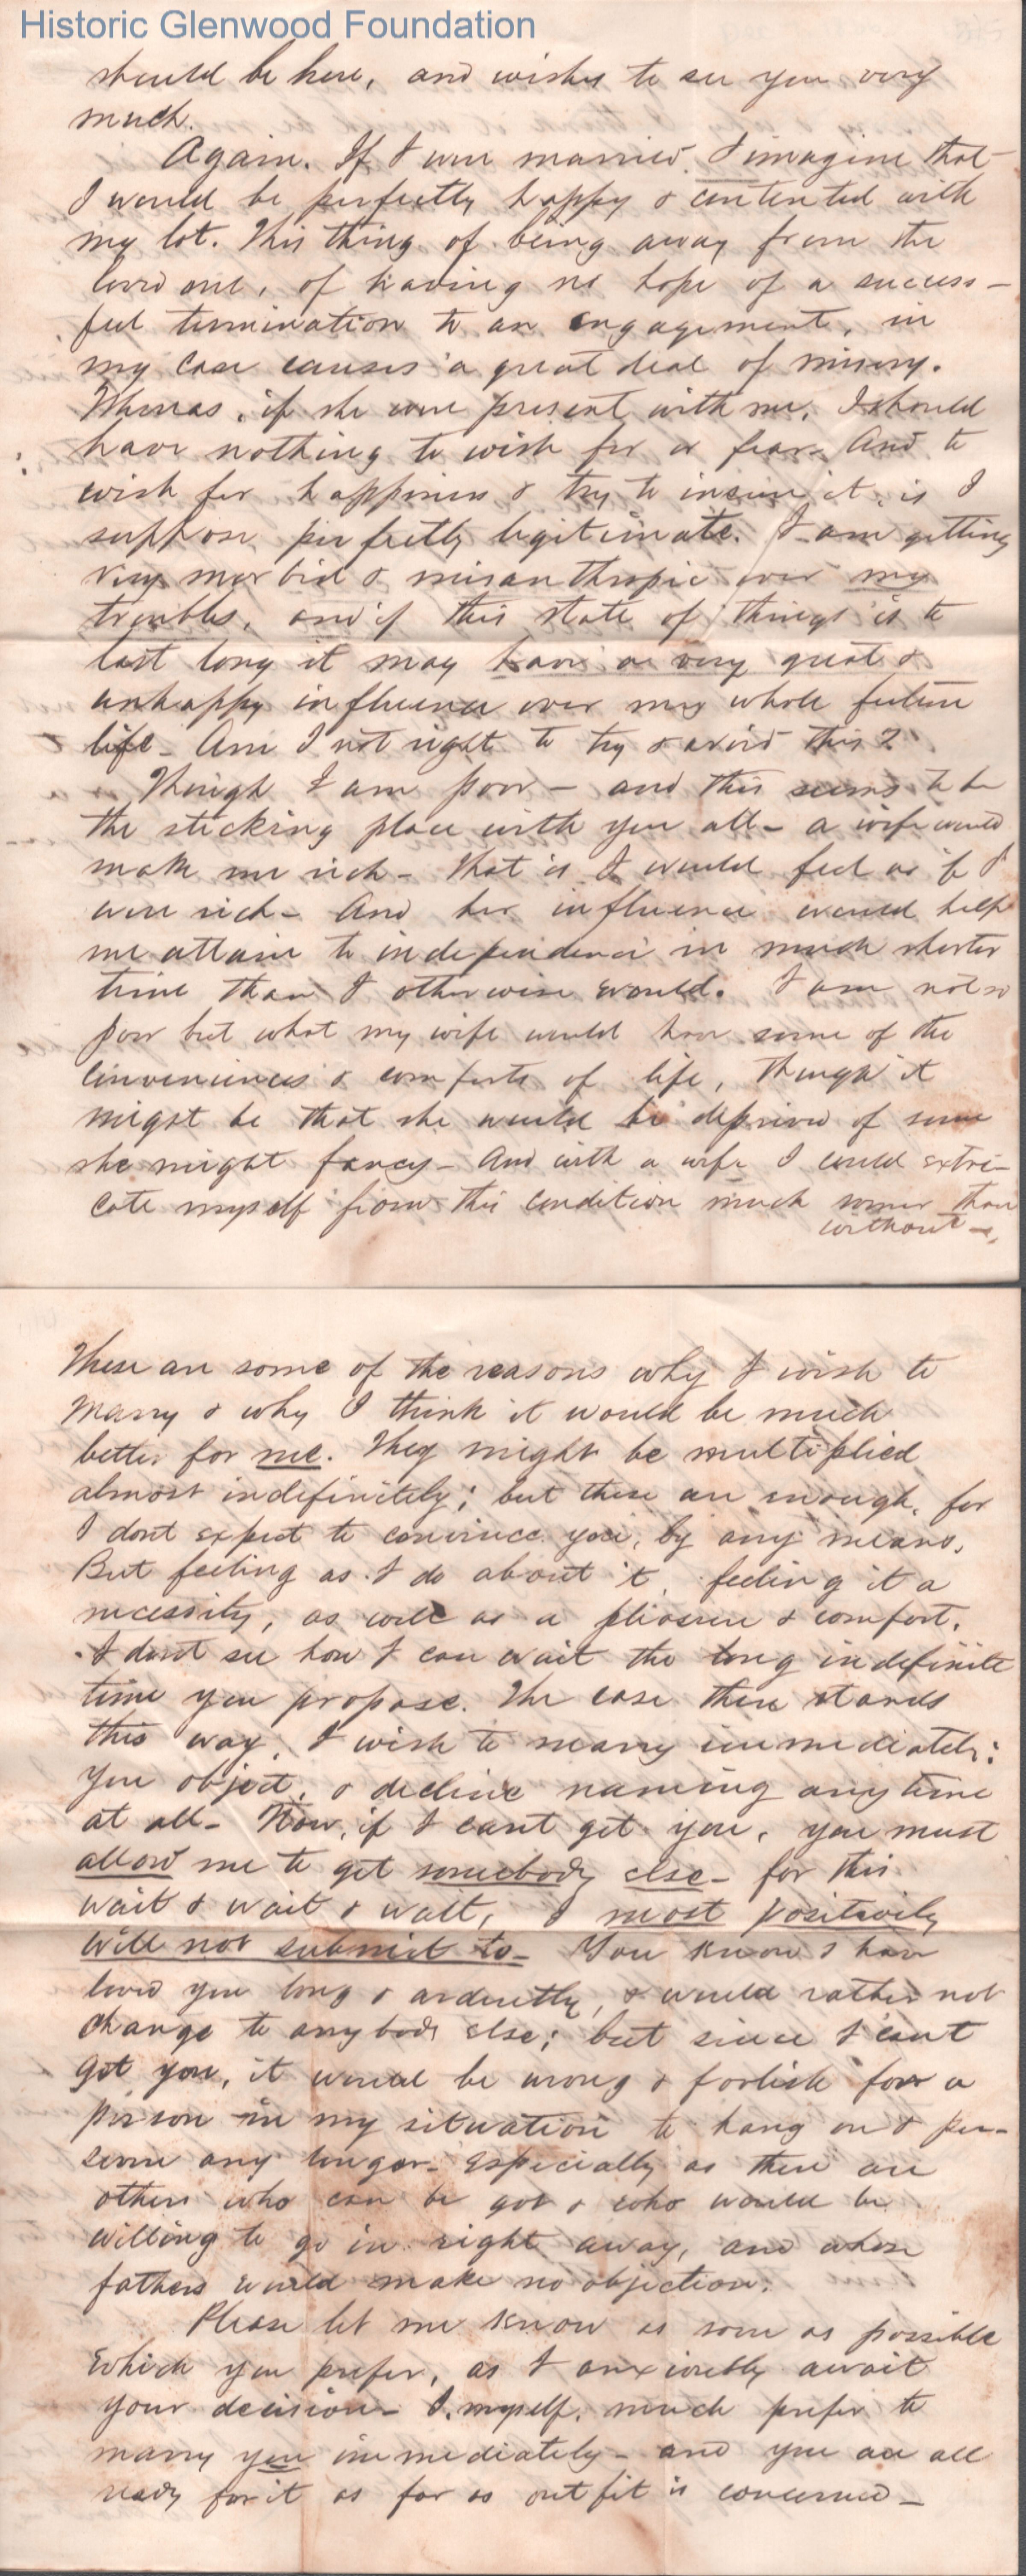 Historic Glenwood Foundation
should be here, and wishes to see you very
much.
Again. If I were married I imagine that
I would be perfectly happy & contented with
my lot. This thing of being away from the
loved one, of having no hope of a success-
ful termination to an engagement, in
my case causes a great deal of misery.
Whereas, if she were present with me, I should
have nothing to wish for or fear. And to
wish for happiness & try to insure it, is I
suppose perfectly legitimate. I am getting
very morbid & misanthropic over my
troubles, and if this state of things is to
last long it may have a very great &
unhappy influence over my whole future
life - Am I not right to try & avoid this?
Though I am poor - and this seems to be
the sticking place with you all - a wife would
make me rich - that is I would feel as if I
were rich - And her influence would help
me attain to independence in much shorter
time than I otherwise would. I am not so
poor but what my wife would have some of the
conveniences & comforts of life, though it
might be that she would be deprived of some
she might fancy - And with a wife I could extri-
cate myself from this condition much sooner than
without -
These are some of the reasons why I wish to
marry & why I think it would be much
better for me. They might be multiplied
almost indefinitely; but these are enough, for
I dont expect to convince you, by any means.
But feeling as I do about it, feeling it a
necessity, as well as a pleasure & comfort,
I dont see how I can wait the long indefinite
time you propose. The case then stands
this way, I wish to marry immediately:
You object, & decline naming any time
at all - Now, if I cant get you, you must
allow me to get somebody else - for this
wait & wait & wait, I most positively
will not submit to - You know I have
loved you long & ardently, & would rather not
change to anybody else; but since I cant
get you, it would be wrong & foolish for a
person in my situation to hang on & per-
severe any longer - Especially as there are
others who can be got & who would be
willing to go in right away, and whose
fathers would make no objection.
Please let me know as soon as possible
which you prefer, as I anxiously await
your decision - I, myself, much prefer to
marry you immediately - and you are all
ready for it as far as outfit is concerned -